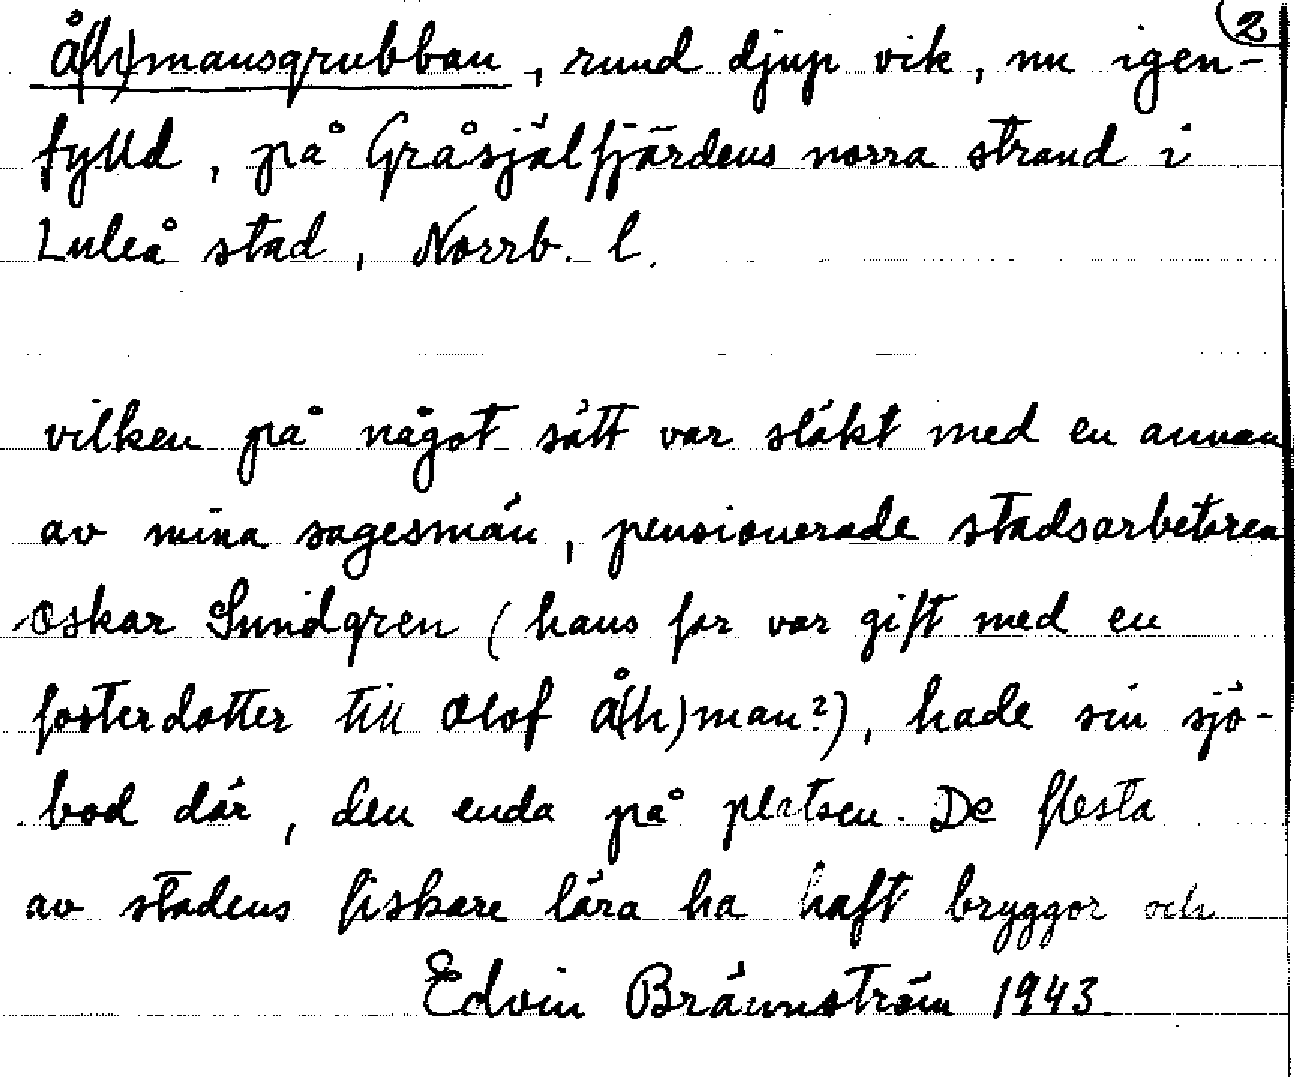 2
Å(h)mansgrubban, rund djup vik, nu igen-
fylld, på Gråsjälfjärdens norra strand i
Luleå stad, Norrb. l.
vilken på något sätt var släkt med en annan
av mina sagesmän, pensionerade stadsarbetaren
Oskar Sundgren (hans far var gift med en
fosterdotter till Olof Å(h)man?), hade sin sjö-
bod där, den enda på platsen. De flesta
av stadens fiskare lära ha haft bryggor och
Edvin Brännström 1943